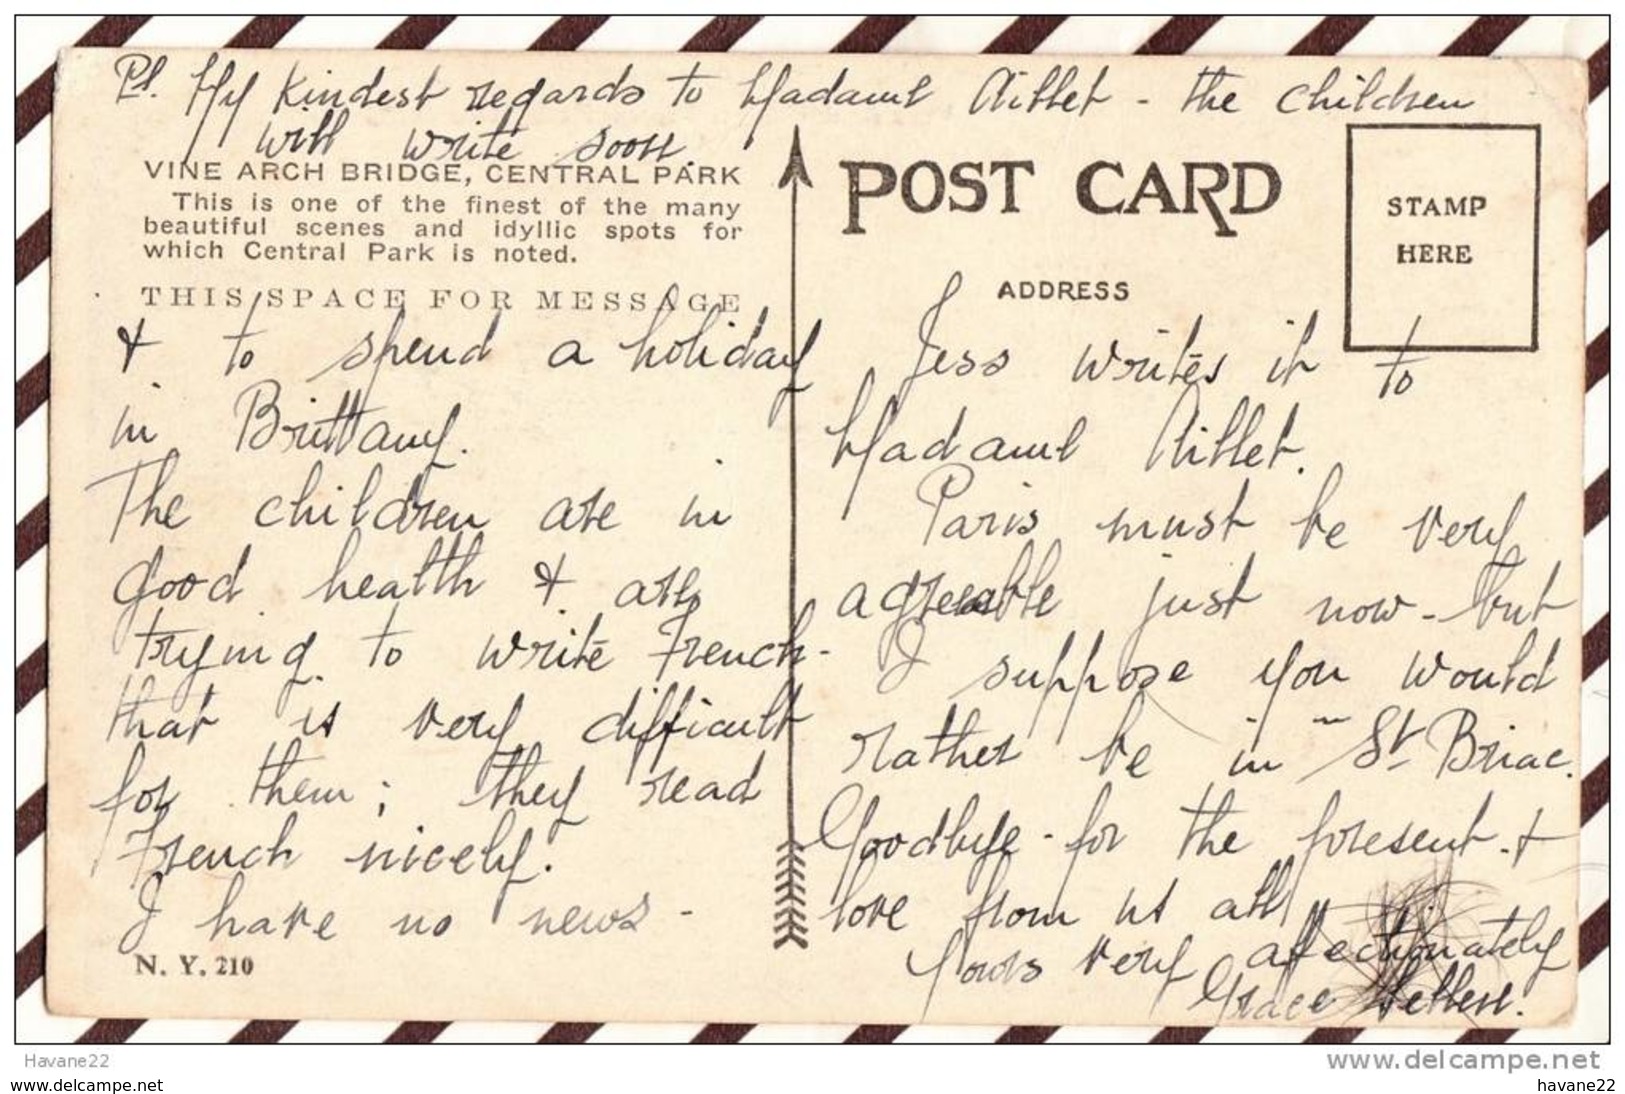 Ps. My kindest regards to Madame Aillet - the children
will write soon.
VINE ARCH BRIDGE, CENTRAL PARK
This is one of the finest of the many
beautiful scenes and idyllic spots for
which Central Park is noted.
THIS SPACE FOR MESSAGE
& to spend a holiday
in Brittany.
The children are in
good health & are
trying to write French -
that is very difficult
for them; they read
French nicely.
I have no news -
N. Y. 210
POST CARD
ADDRESS
STAMP
HERE
Jess writes it to
Madame Aillet.
Paris must be very
agreeable just now - but
I suppose you would
rather be in St Briac.
Goodbye - for the present - &
love from us all
Yours very affectionately
Grace
Havane22
www.delcampe.net
www.delcampe.net
havane22